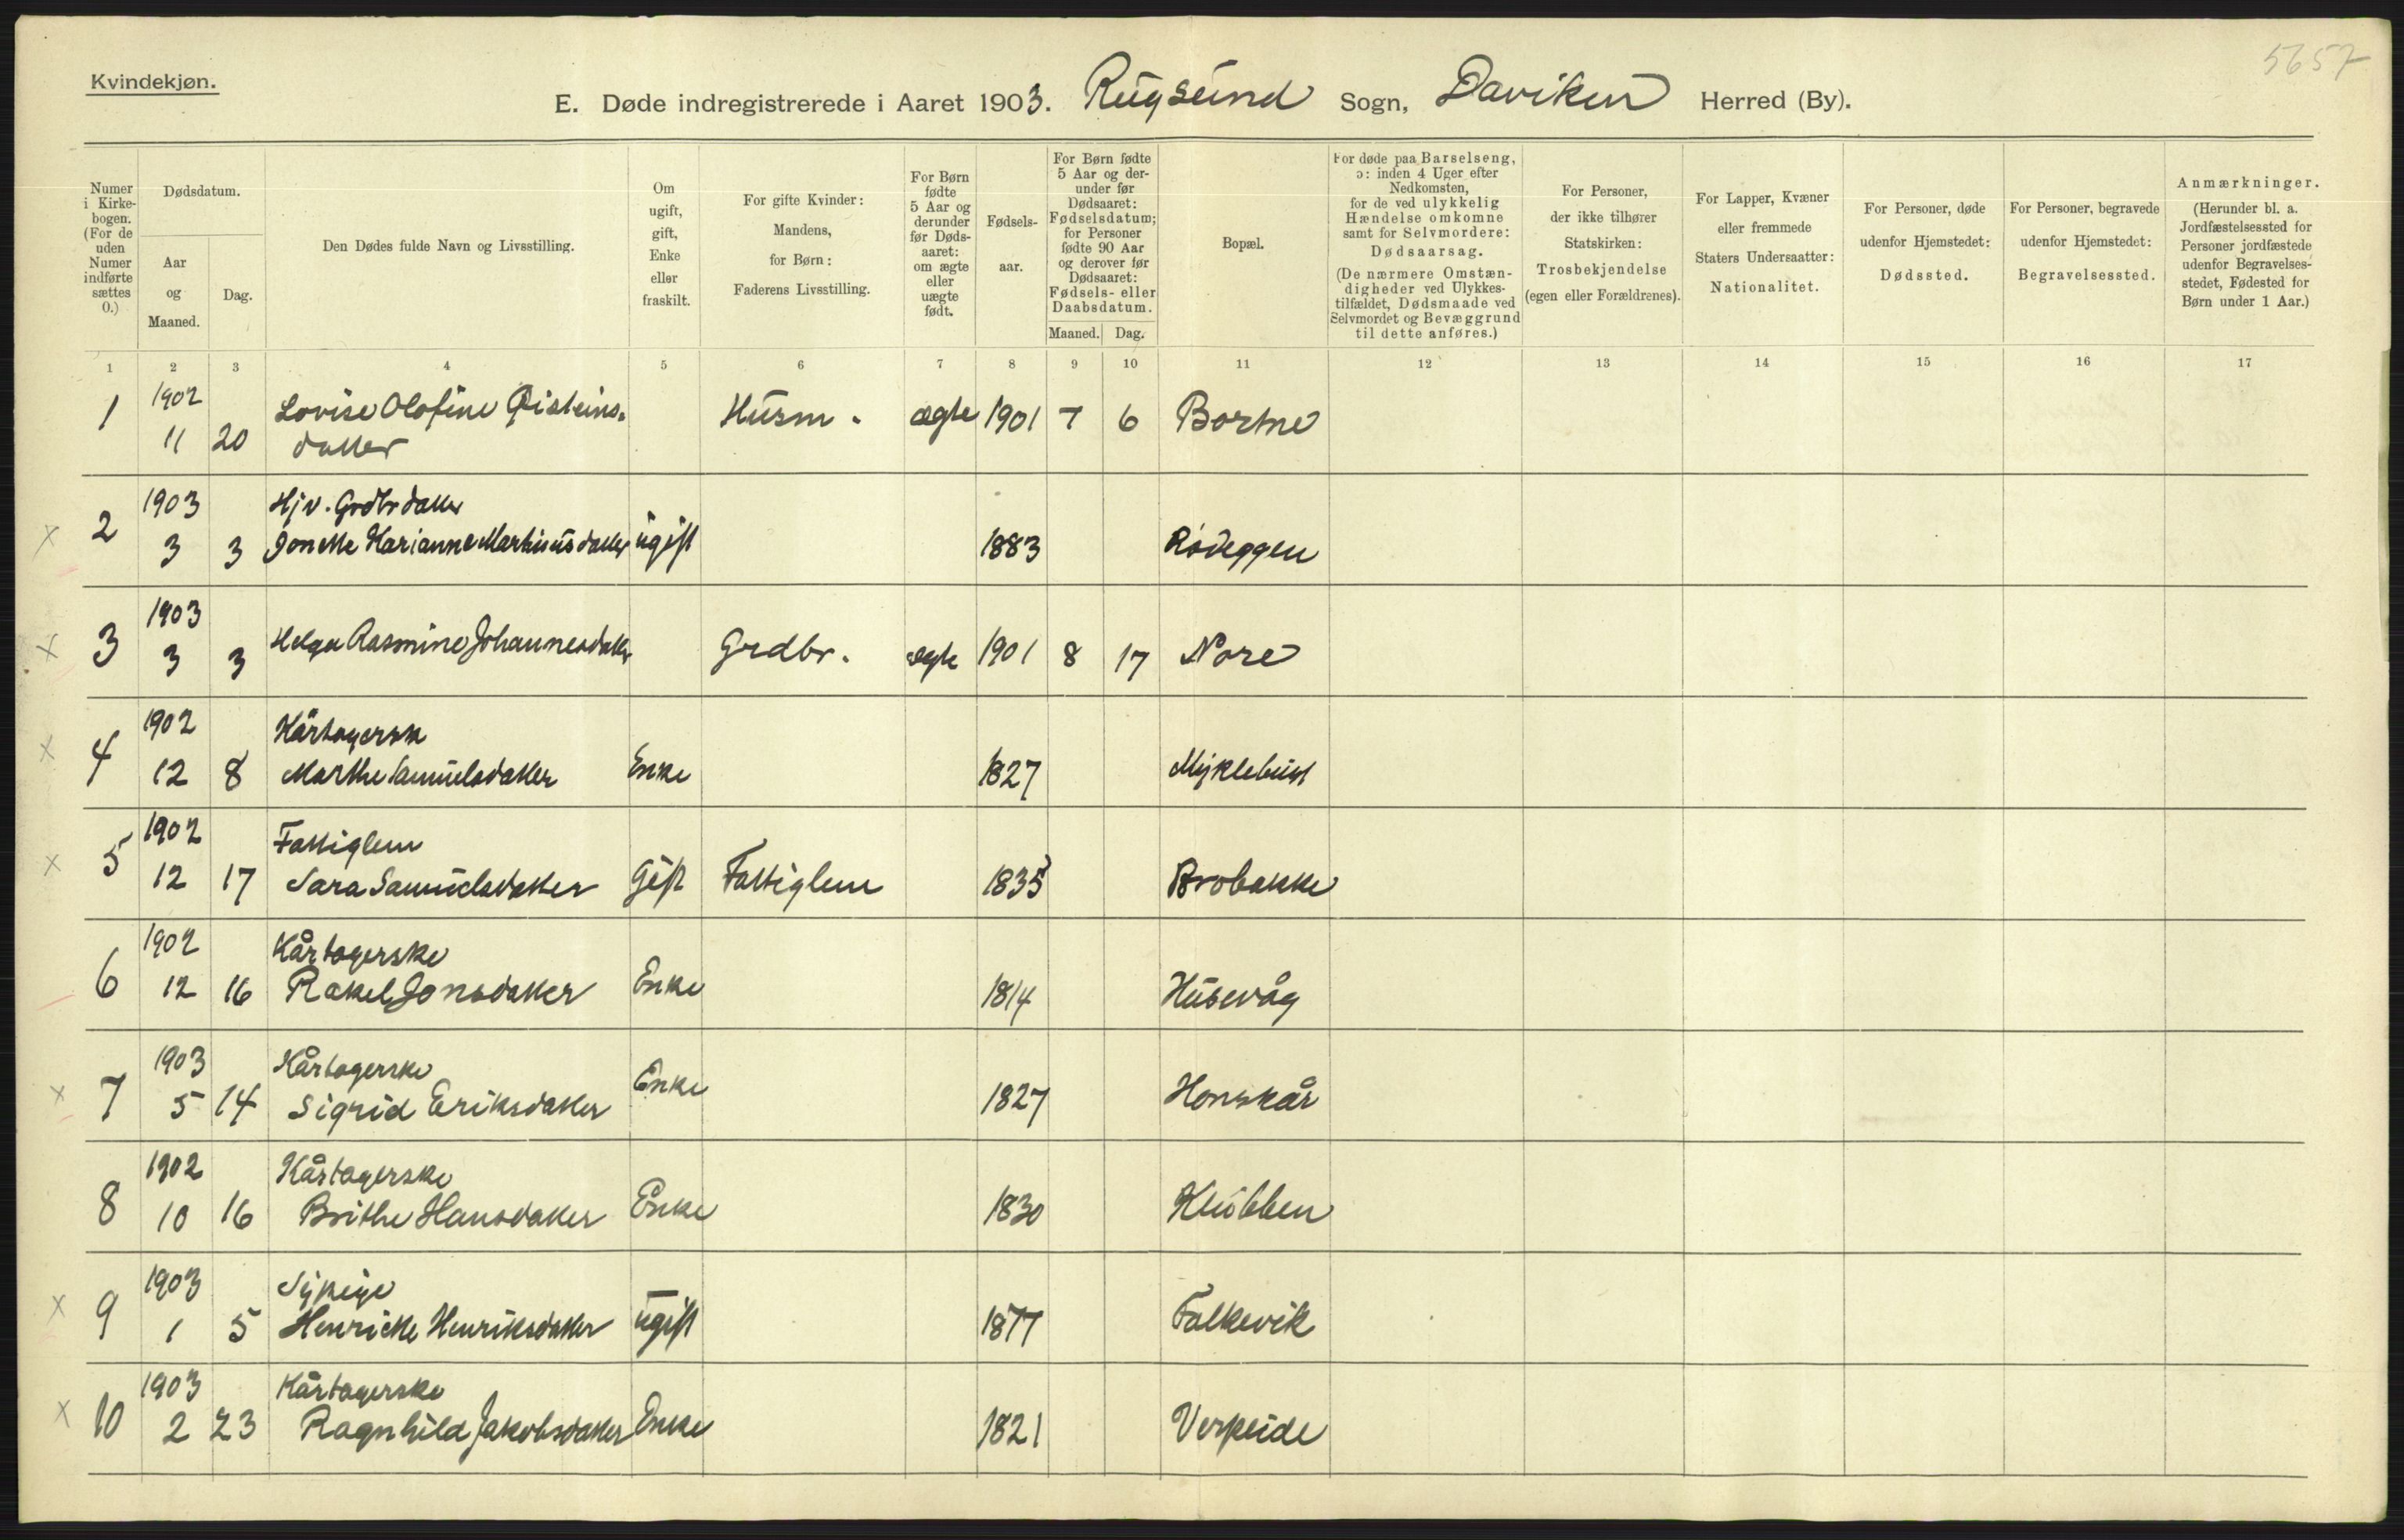 5657
Kvindekjøn.
E. Døde indregistrerede i Aaret 1903. Rugsund Sogn, Daviken Herred (By).
Numer i Kirke-bogen. (For de uden Numer indførte sættes 0.)
Dødsdatum.
Aar og Maaned.
Dag.
Den Dødes fulde Navn og Livsstilling.
Om ugift, gift, Enke eller fraskilt.
For gifte Kvinder: Mandens, for Børn: Faderens Livsstilling.
For Børn fødte 5 Aar og derunder før Døds-aaret: om ægte eller uægte født.
Fødsels-aar.
For Børn fødte 5 Aar og der-under før Dødsaaret: Fødselsdatum; for Personer fødte 90 Aar og derover før Dødsaaret: Fødsels- eller Daabsdatum.
Maaned. Dag.
Bopæl.
For døde paa Barselseng, ɔ: inden 4 Uger efter Nedkomsten, for de ved ulykkelig Hændelse omkomne samt for Selvmordere: Dødsaarsag. (De nærmere Omstæn-digheder ved Ulykkes-tilfældet, Dødsmaade ved Selvmordet og Bevæggrund til dette anføres.)
For Personer, der ikke tilhører Statskirken: Trosbekjendelse (egen eller Forældrenes).
For Lapper, Kvæner eller fremmede Staters Undersaatter: Nationalitet.
For Personer, døde udenfor Hjemstedet: Dødssted.
For Personer, begravede udenfor Hjemstedet: Begravelsessted.
Anmærkninger. (Herunder bl. a. Jordfæstelsessted for Personer jordfæstede udenfor Begravelses-stedet, Fødested for Børn under 1 Aar.)
1 2 3 4 5 6 7 8 9 10 11 12 13 14 15 16 17
1 1902 Lovise Olofine Øisteins-
11 20 datter Husm. ægte 1901 7 6 Bortne
1903 Hjv. Grdbrdatter
x 2 3 3 Jonette Marianne Martinusdatter ugift 1883 Rödeggen
1903
x 3 3 3 Helga Rasmine Johannesdatter Grdbr. ægte 1901 8 17 Nore
1902 Kårtagerske
x 4 12 8 Marthe Samuelsdatter Enke 1827 Myklebust
1902 Fattiglem
x 5 12 17 Sara Samuelsdatter Gift Fattiglem 1835 Brobakke
1902 Kårtagerske
6 12 16 Rakel Jonsdatter Enke 1814 Husevåg
1903 Kårtagerske
x 7 5 14 Sigrid Eriksdatter Enke 1827 Honskår
1902 Kårtagerske
8 10 16 Brithe Hansdatter Enke 1830 Klubben
1903 Sypige
x 9 1 5 Henrikke Henriksdatter ugift 1877 Falkevik
1903 Kårtagerske
x 10 2 23 Ragnhild Jakobsdatter Enke 1821 Verpeide